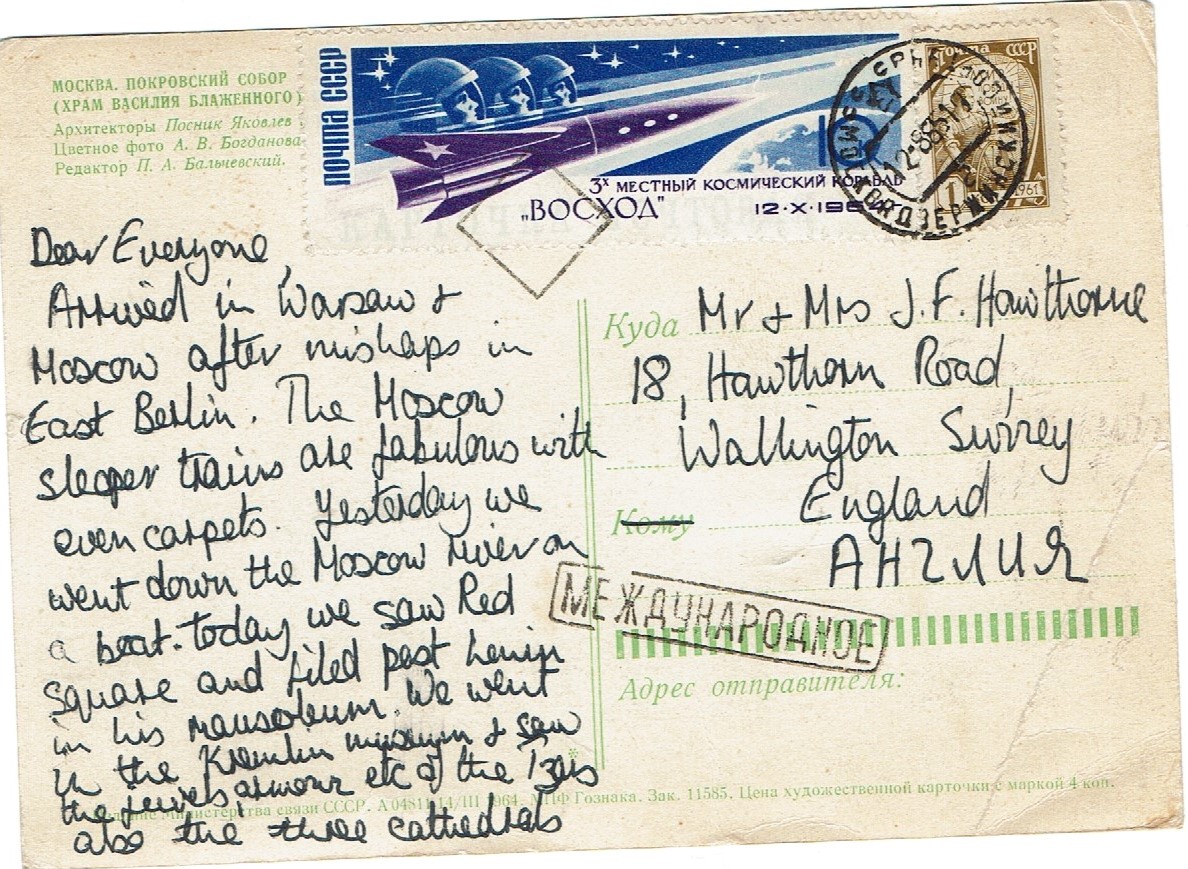 МОСКВА. ПОКРОВСКИЙ СОБОР
(ХРАМ ВАСИЛИЯ БЛАЖЕННОГО)
Архитекторы Посник Яковлев
Цветное фото А. В. Богданова
Редактор П. А. Бальчевский.
ПОЧТА СССР
10
3Х МЕСТНЫЙ КОСМИЧЕСКИЙ КОРАБЛЬ
„ВОСХОД" 12·X·196
ПОЧТА СССР
1
1961
КАРТОЧКА
Dear Everyone,
Arrived in Warsaw &
Moscow after mishaps in
East Berlin. The Moscow
sleeper trains are fabulous with
even carpets. Yesterday we
went down the Moscow river on
a boat. today we saw Red
Square and filed past Lenin
in his mausoleum. We went
in the Kremlin museum & saw
the jewels armour etc of the Tzars
also the three cathedrals
Куда Mr & Mrs J.F. Hawthorne
18, Hawthorn Road,
Wallington Surrey
Кому England
АНГЛИЯ
МЕЖДУНАРОДНОЕ
Адрес отправителя:
Министерства связи СССР. А 04811 14/III 1964. МПФ Гознака. Зак. 11585. Цена художественной карточки с маркой 4 коп.